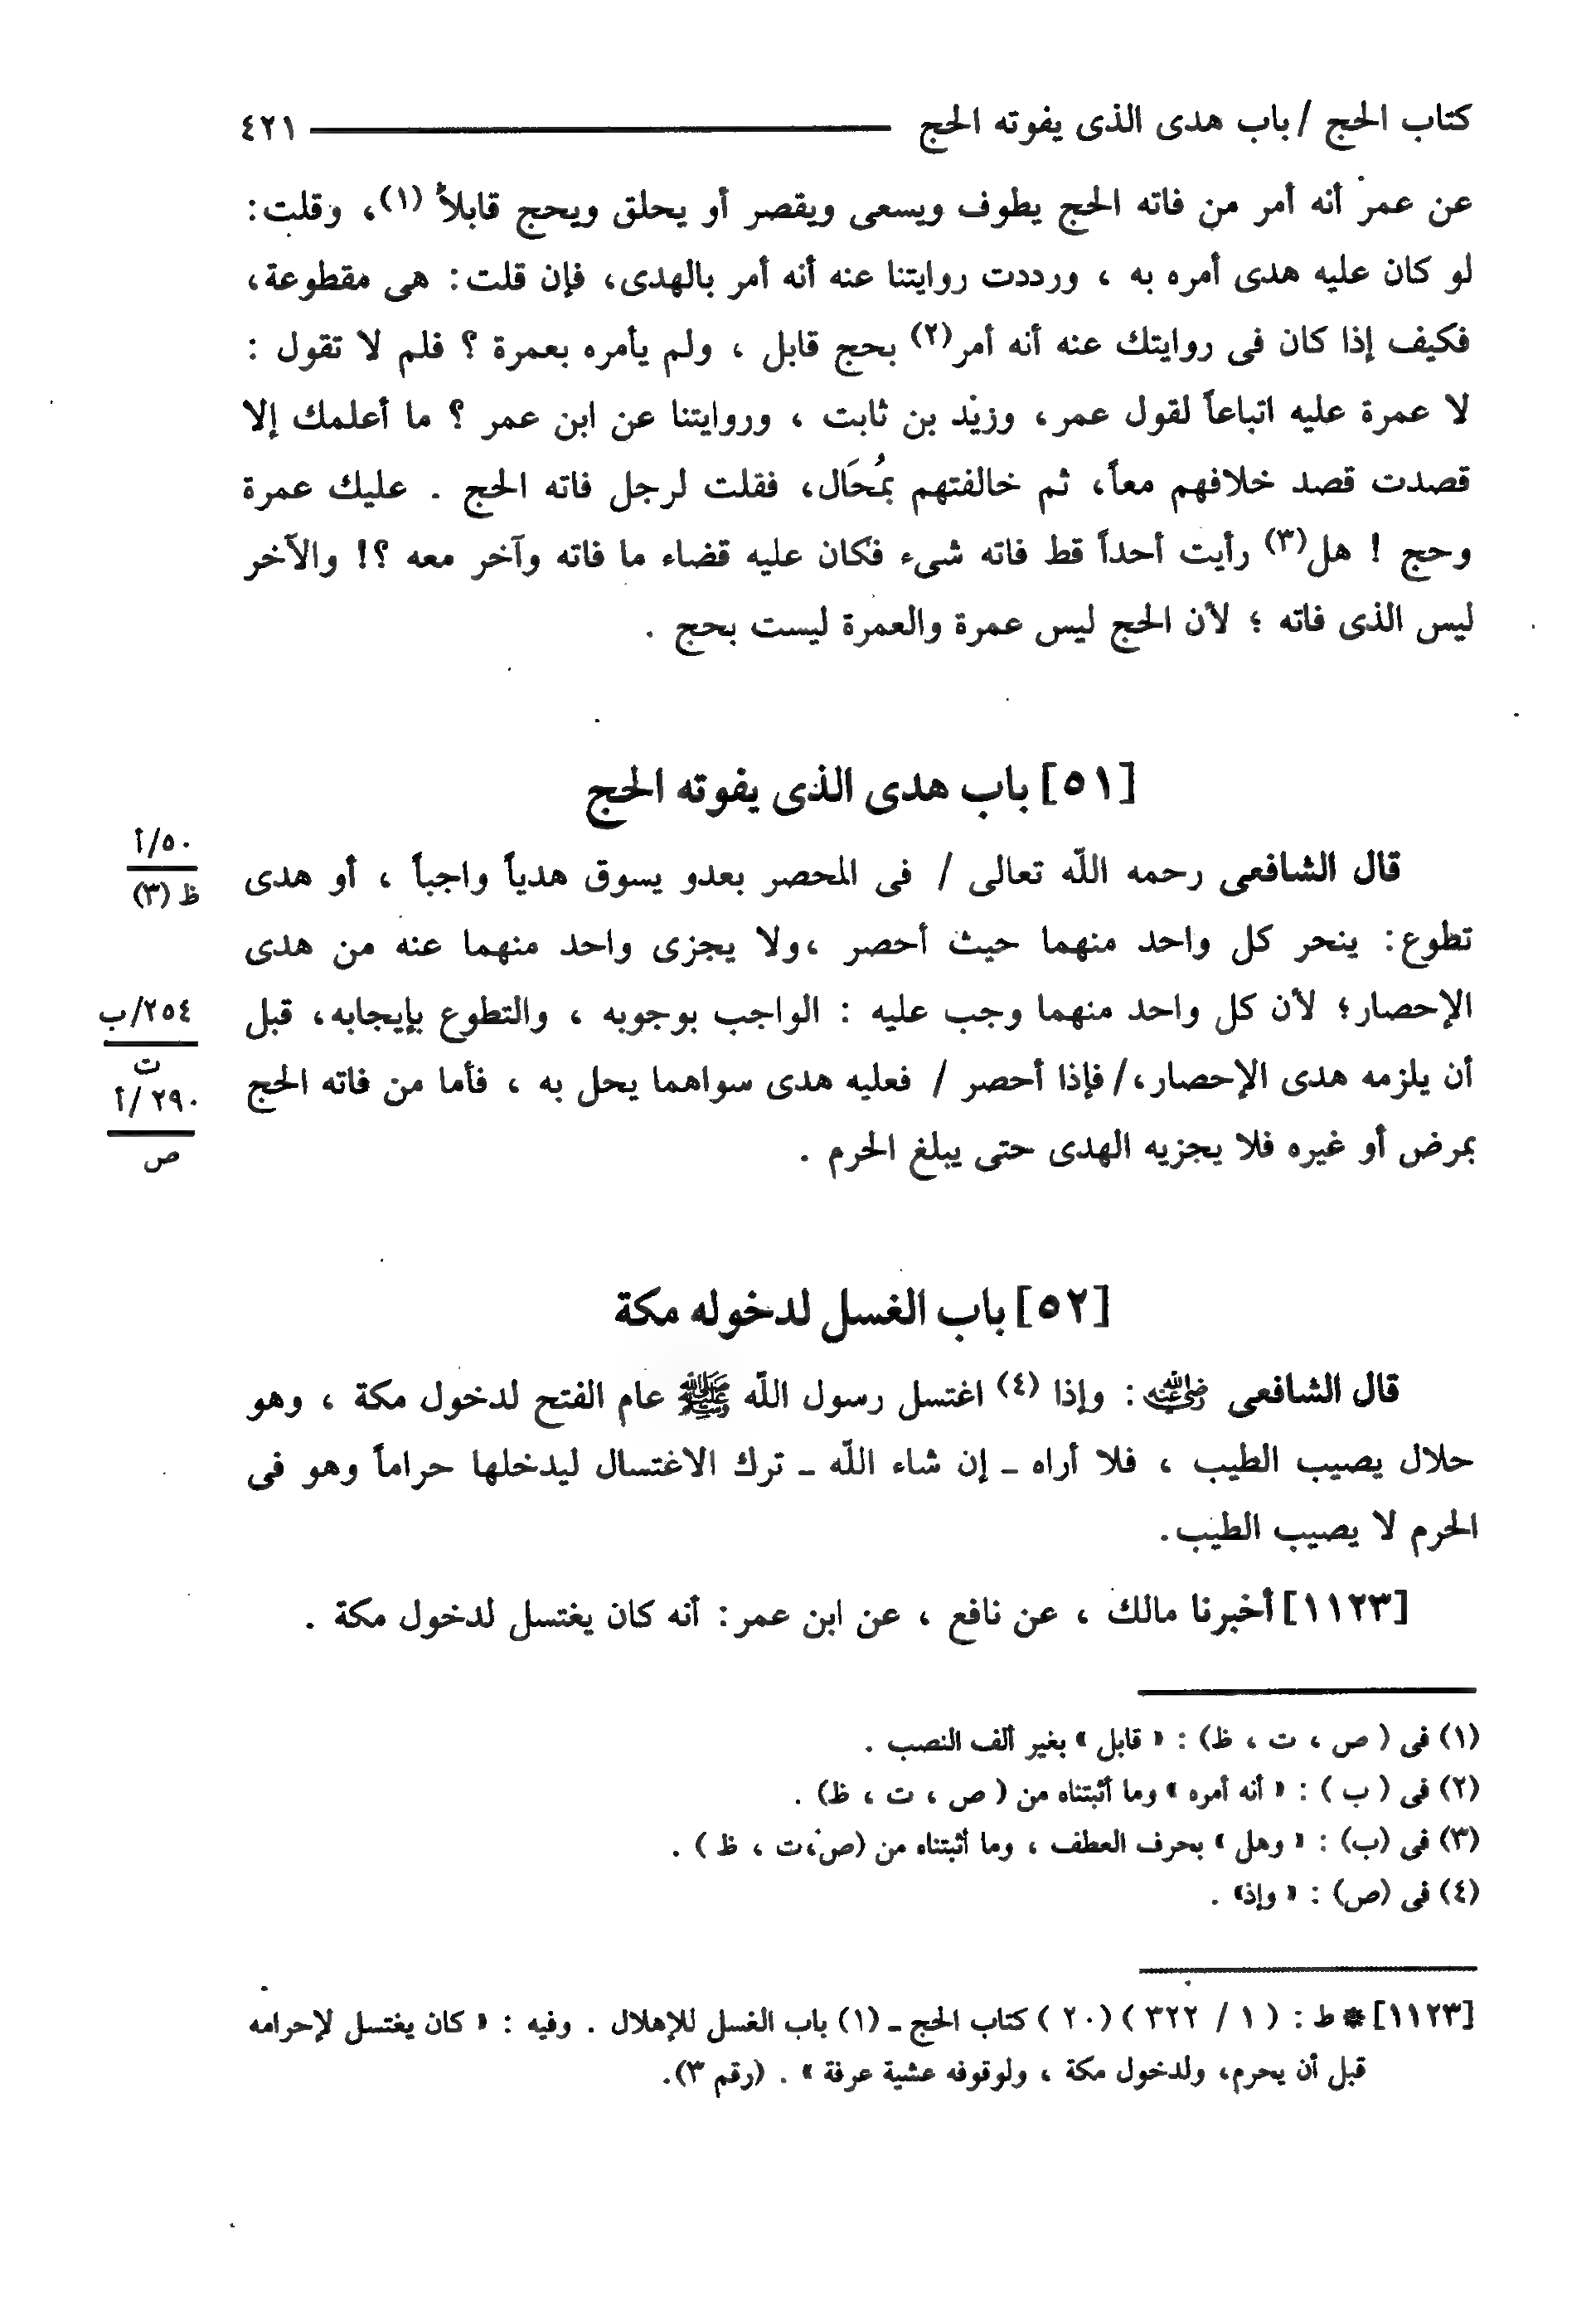 كتاب الحج / باب هدى الذى يفوته الحج ٤٢١
عن عمر أنه أمر من فاته الحج يطوف ويسعى ويقصر أو يحلق ويحج قابلاً (١)، وقلت:
لو كان عليه هدى أمره به ، ورددت روايتنا عنه أنه أمر بالهدى، فإن قلت: هى مقطوعة،
فكيف إذا كان فى روايتك عنه أنه أمر(٢) بحج قابل ، ولم يأمره بعمرة ؟ فلم لا تقول :
لا عمرة عليه اتباعاً لقول عمر، وزيد بن ثابت ، وروايتنا عن ابن عمر ؟ ما أعلمك إلا
قصدت قصد خلافهم معاً، ثم خالفتهم بمُحَال، فقلت لرجل فاته الحج . عليك عمرة
وحج ! هل(٣) رأيت أحداً قط فاته شىء فكان عليه قضاء ما فاته وآخر معه ؟! والآخر
ليس الذى فاته ؛ لأن الحج ليس عمرة والعمرة ليست بحج .
[٥١] باب هدى الذى يفوته الحج
قال الشافعى رحمه اللّه تعالى / فى المحصر بعدو يسوق هدياً واجباً ، أو هدى
٥٠/أ
ظ (٣)
تطوع: ينحر كل واحد منهما حيث أحصر ،ولا يجزى واحد منهما عنه من هدى
الإحصار؛ لأن كل واحد منهما وجب عليه : الواجب بوجوبه ، والتطوع بإيجابه، قبل
٢٥٤/ب
ت
أن يلزمه هدى الإحصار،/ فإذا أحصر / فعليه هدى سواهما يحل به ، فأما من فاته الحج
٢٩٠/أ
ص
بمرض أو غيره فلا يجزيه الهدى حتى يبلغ الحرم .
[٥٢] باب الغسل لدخوله مكة
قال الشافعى رضي الله عنه : وإذا (٤) اغتسل رسول اللّه ﷺ عام الفتح لدخول مكة ، وهو
حلال يصيب الطيب ، فلا أراه ـ إن شاء اللّه ـ ترك الاغتسال ليدخلها حراماً وهو فى
الحرم لا يصيب الطيب.
[١١٢٣] أخبرنا مالك ، عن نافع ، عن ابن عمر: أنه كان يغتسل لدخول مكة .
(١) فى ( ص ، ت ، ظ) : « قابل » بغير ألف النصب .
(٢) فى ( ب ) : « أنه أمره » وما أثبتناه من ( ص ، ت ، ظ) .
(٣) فى (ب) : « وهل » بحرف العطف ، وما أثبتناه من (ص،ت ، ظ ) .
(٤) فى (ص) : « وإذ» .
[١١٢٣] * ط : ( ١ / ٣٢٢ ) (٢٠ ) كتاب الحج ـ (١) باب الغسل للإهلال . وفيه : « كان يغتسل لإحرامه
قبل أن يحرم، ولدخول مكة ، ولوقوفه عشية عرفة » . (رقم ٣).